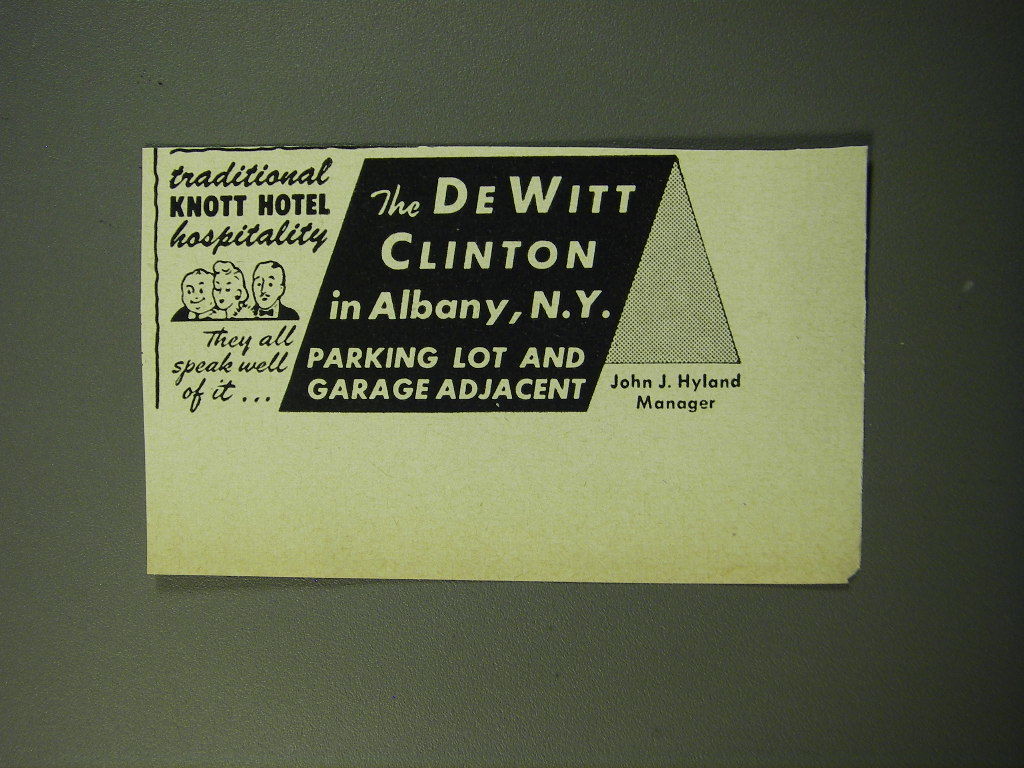 traditional
KNOTT HOTEL
hospitality
They all
speak well
of it...
The DE WITT
CLINTON
in Albany, N.Y.
PARKING LOT AND
GARAGE ADJACENT
John J. Hyland
Manager